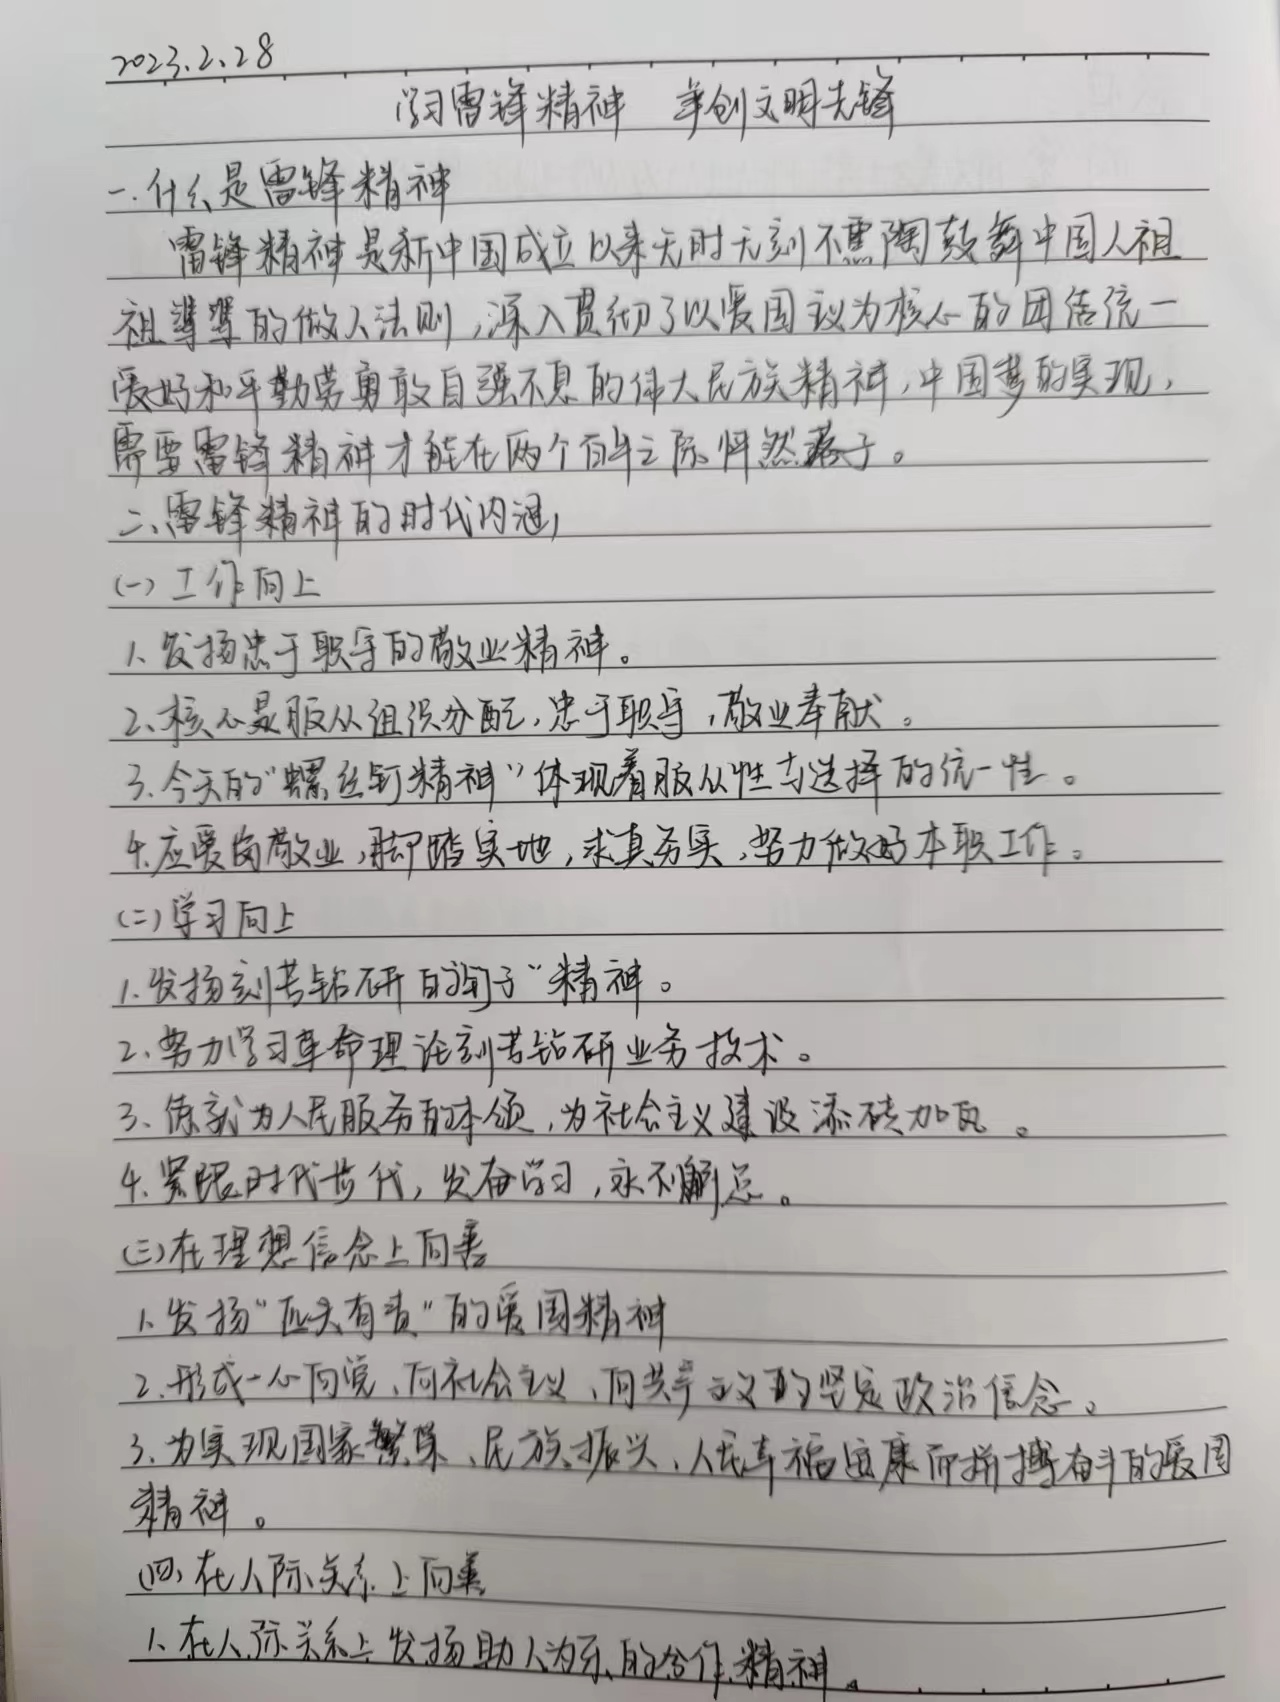 2023.2.28
学习雷锋精神 争创文明先锋
一.什么是雷锋精神
雷锋精神是新中国成立以来无时无刻不熏陶鼓舞中国人祖
祖辈辈的做人法则,深入贯彻了以爱国主议为核心的团结统一
爱好和平勤劳勇敢自强不息的伟大民族精神,中国梦的实现,
需要雷锋精神才能在两个百年之际怦然落子。
二、雷锋精神的时代内涵,
(一)工作向上
1、发扬忠于职守的敬业精神。
2、核心是服从组织分配,忠于职守,敬业奉献。
3.今天的"螺丝钉精神"体现着服从性与选择的统一性。
4.应爱岗敬业,脚踏实地,求真务实,努力做好本职工作。
(二)学习向上
1.发扬刻苦钻研的"钉子"精神。
2、努力学习革命理论刻苦钻研业务技术。
3、练就为人民服务的本领,为社会主义建设添砖加瓦。
4.紧跟时代步代,发奋学习,永不懈怠。
(三)在理想信念上向善
1、发扬"匹夫有责"的爱国精神
2.形成一心向党、向社会主义、向共产主义的坚定政治信念。
3.为实现国家繁荣、民族振兴、人民幸福安康而拼搏奋斗的爱国
精神。
(四)在人际关系上向善
1.在人际关系上发扬助人为乐的合作精神。